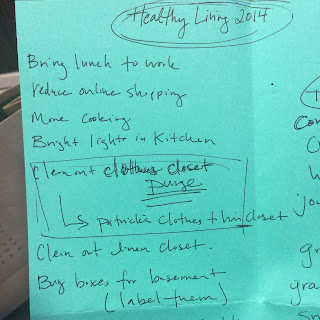 Healthy Living 2014
Bring lunch to work
reduce online shopping
More cooking
Bright lights in Kitchen
Clean out clothes closet
purge
Patrick's clothes + closet
Clean out linen closet.
Buy boxes for basement
(label them)